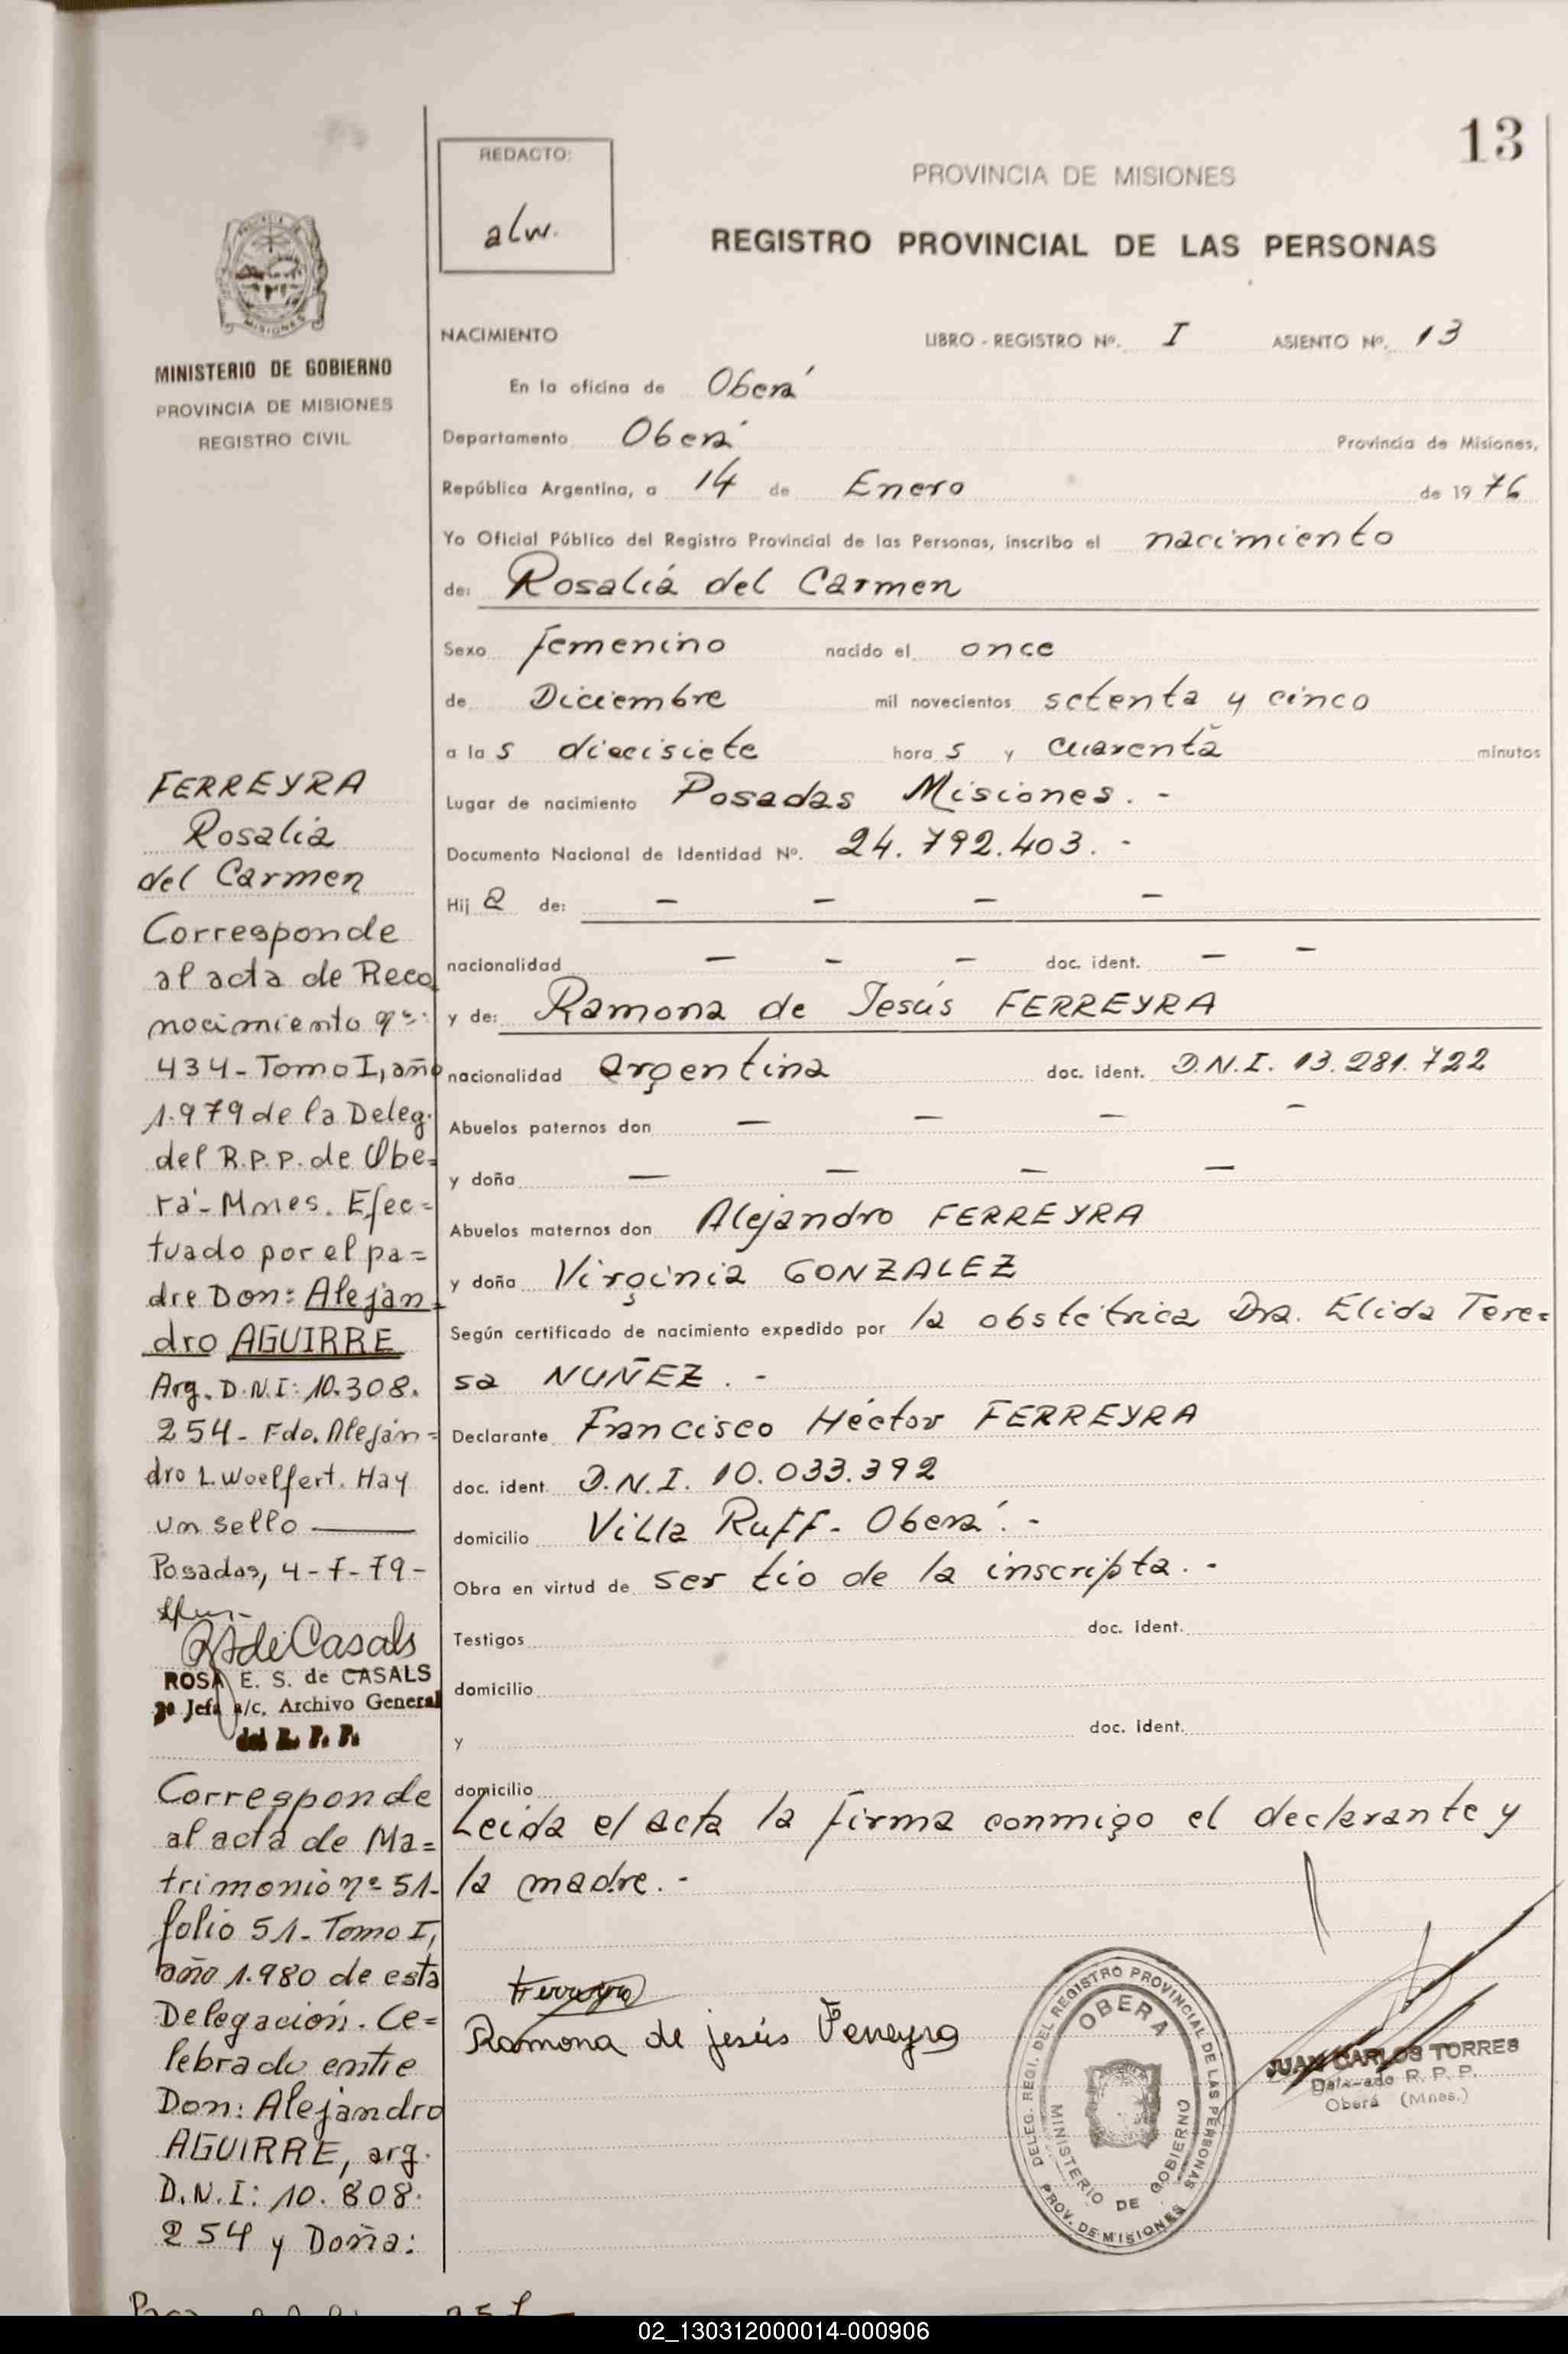 13
REDACTO:
alw.
PROVINCIA DE MISIONES
REGISTRO PROVINCIAL DE LAS PERSONAS
MISIONES
MINISTERIO DE GOBIERNO
PROVINCIA DE MISIONES
REGISTRO CIVIL
NACIMIENTO LIBRO - REGISTRO Nº. I ASIENTO Nº. 13
En la oficina de Oberá
Departamento Oberá Provincia de Misiones,
República Argentina, a 14 de Enero de 19 76
Yo Oficial Público del Registro Provincial de las Personas, inscribo el nacimiento
de: Rosalía del Carmen
Sexo femenino nacido el once
de Diciembre mil novecientos setenta y cinco
a la s diecisiete hora s y cuarenta minutos
Lugar de nacimiento Posadas Misiones. -
Documento Nacional de Identidad Nº. 24.792.403. -
Hij a de: - - - -
nacionalidad - - - doc. ident. - -
y de: Ramona de Jesús FERREYRA
nacionalidad argentina doc. ident. D.N.I. 13.281.722
Abuelos paternos don - - - -
y doña - - - -
Abuelos maternos don Alejandro FERREYRA
y doña Virginia GONZALEZ
Según certificado de nacimiento expedido por la obstétrica Dra. Elida Tere=
sa NUÑEZ. -
Declarante Francisco Héctor FERREYRA
doc. ident. D.N.I. 10.033.392
domicilio Villa Ruff - Oberá. -
Obra en virtud de ser tío de la inscripta. -
Testigos doc. ident.
domicilio
y doc. ident.
domicilio
Leída el acta la firma conmigo el declarante y
la madre. -
Ferreyra
Ramona de jesús Ferreyra
DELEG. REGI. DEL REGISTRO PROVINCIAL DE LAS PERSONAS
OBERA
MINISTERIO DE GOBIERNO
PROV. DE MISIONES
JUAN CARLOS TORRES
Delegado R. P. P.
Oberá (Mnes.)
FERREYRA
Rosalia
del Carmen
Corresponde
al acta de Reco
nocimiento nº:
434 - Tomo I, año
1.979 de la Deleg.
del R.P.P. de Obe=
rá - Mnes. Efec=
tuado por el pa=
dre Don: Alejan=
dro AGUIRRE
Arg. D.N.I: 10.308.
254 - Fdo. Alejan=
dro L. Woelfert. Hay
un sello
Posadas, 4-7-79-
de Casals
ROSA E. S. de CASALS
Jefa a/c. Archivo General
del R. P. P.
Corresponde
al acta de Ma=
trimonio nº 51-
folio 51 - Tomo I,
año 1.980 de esta
Delegación. Ce=
lebrado entre
Don: Alejandro
AGUIRRE, arg.
D.N.I: 10.808.
254 y Doña:
02_130312000014-000906